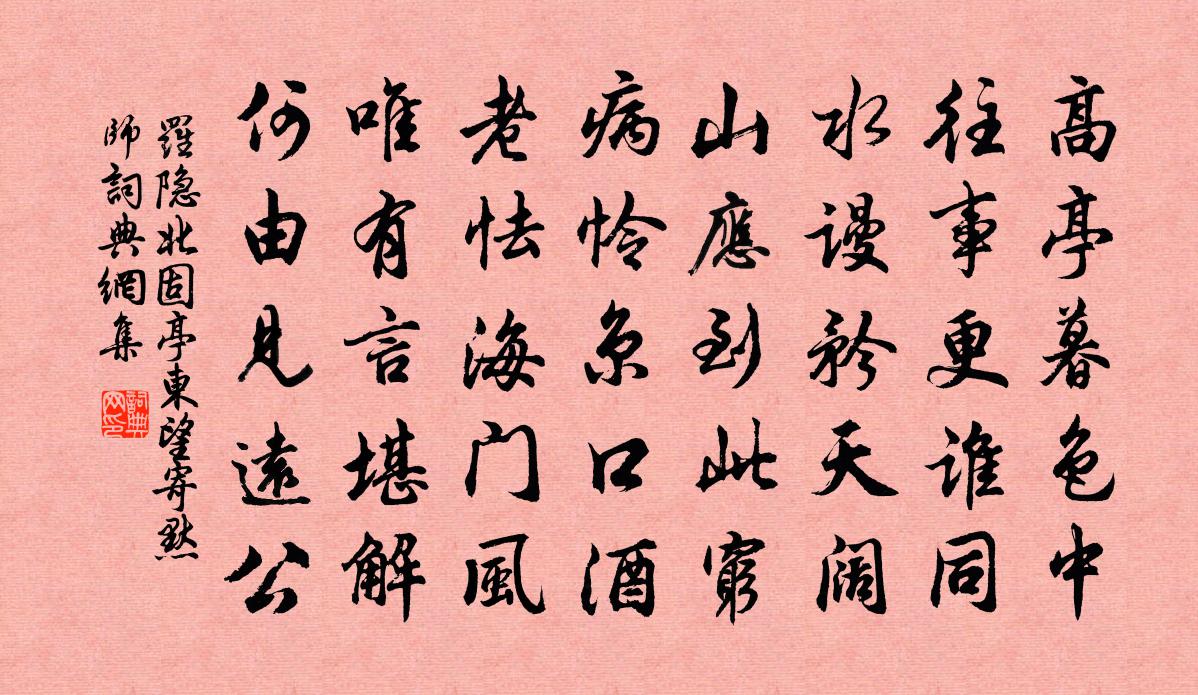 高亭暮色中
往事更谁同
水谩矜天阔
山應到此窮
病怜京口酒
老怯海门風
唯有言堪解
何由见遠公
羅隐北固亭東望寄默
師詞典網集
詞典
网印